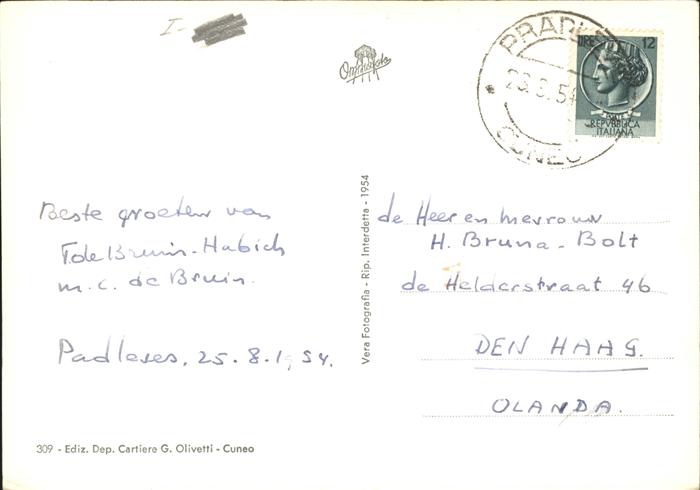 I-
PRADL
23.8.54
CUNEO
LIRE 12
POSTE
REPVBBLICA
ITALIANA
Beste groeten van
F de Bruin-Habich
m.c. de Bruin.
Padleses, 25.8.1954.
Vera Fotografia - Rip. Interdetta - 1954
de Heer en mevrouw
H. Bruna-Bolt
de Helderstraat 46
DEN HAAG.
OLANDA.
309 - Ediz. Dep. Cartiere G. Olivetti - Cuneo